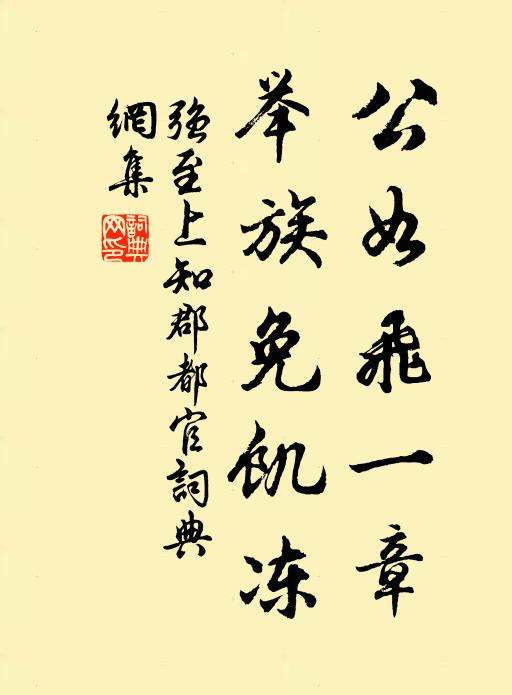 公如飛一章
举族免飢冻
强至上知郡都官詞典
網集
詞典網印